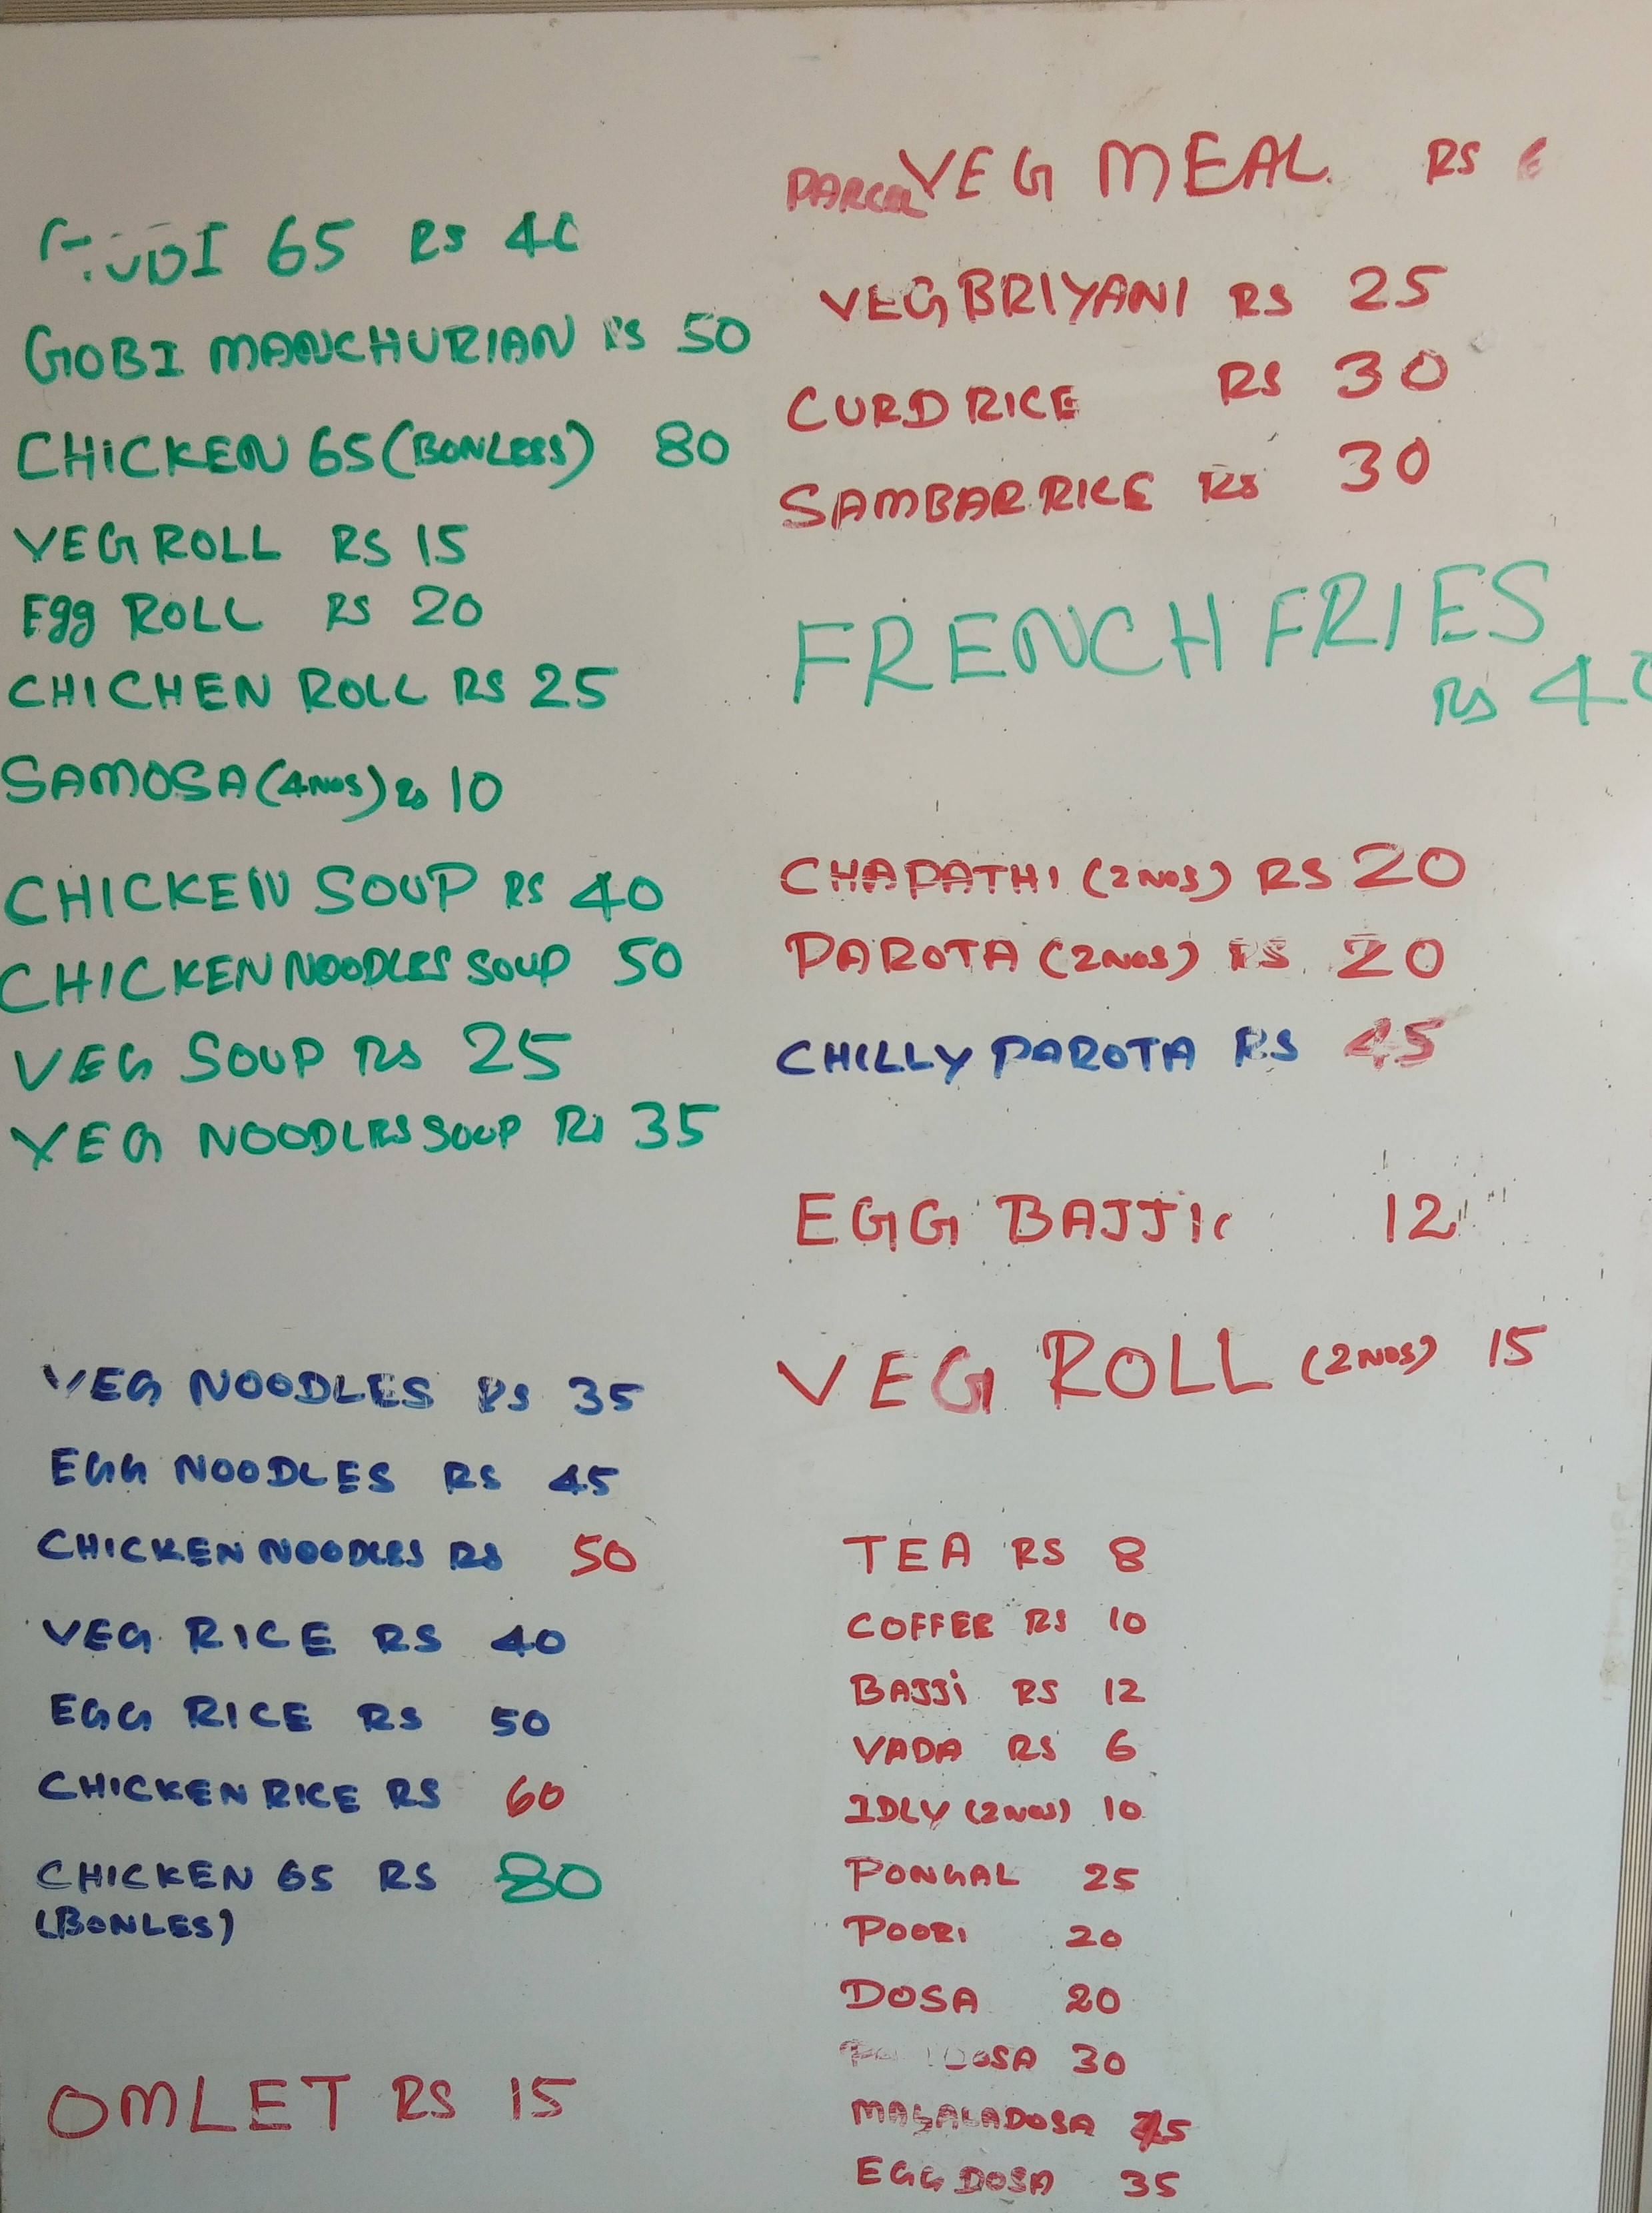 65 RS
GOBI MANCHURIAN RS 50
CHICKEN 65 (BONLESS) 80
VEG ROLL RS 15
Egg ROLL RS 20
CHICHEN ROLL RS 25
SAMOSA (4NOS) RS 10
CHICKEN SOUP RS 40
CHICKEN NOODLES SOUP 50
VEG SOUP RS 25
VEG NOODLES SOUP RS 35
VEG NOODLES RS 35
EGG NOODLES RS 45
CHICKEN NOODLES RS 50
VEG RICE RS 40
EGG RICE RS 50
CHICKEN RICE RS 60
CHICKEN 65 RS 80
(BONLES)
OMLET RS 15
PARCEL VEG MEAL RS
VEG BRIYANI RS 25
CURD RICE RS 30
SAMBAR RICE RS 30
FRENCH FRIES
RS
CHAPATHI (2NOS) RS 20
PAROTA (2NOS) RS 20
CHILLY PAROTA RS 45
EGG 12
VEG ROLL (2NOS) 15
TEA RS 8
COFFEE RS 10
BAJJi RS 12
VADA RS 6
IDLY (2NOS) 10
PONGAL 25
POORI 20
DOSA 20
DOSA 30
MASALADOSA
EGG DOSA 35